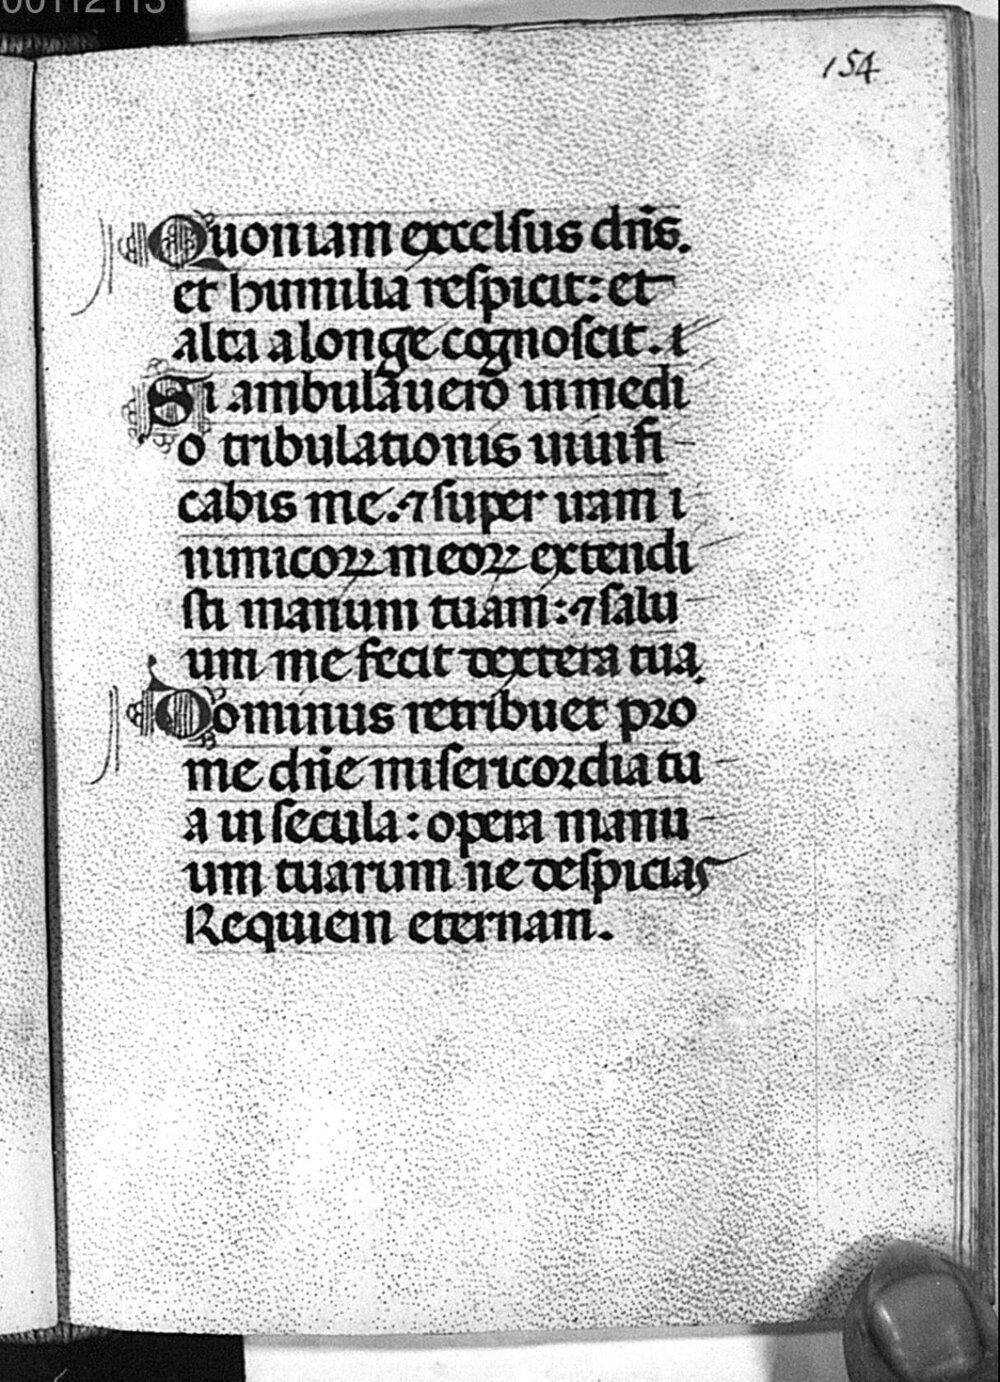 00112113
154
Quoniam excelsus dn̄s.
et humilia respicit: et
alta a longe cognoscit. t
Si ambulauero in medi
o tribulationis uiuifi
cabis me: ⁊ super iram i
nimicoꝝ meoꝝ extendi
sti manum tuam: ⁊ salu
um me fecit dextera tua.
Dominus retribuet pro
me dn̄e misericordia tu
a in secula: opera manu
um tuarum ne despicias
Requiem eternam.